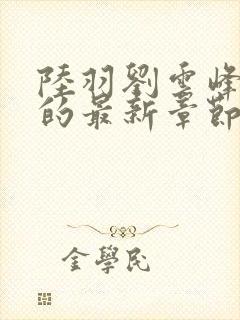 陸羽劉雲峰
的最新章節
金學民